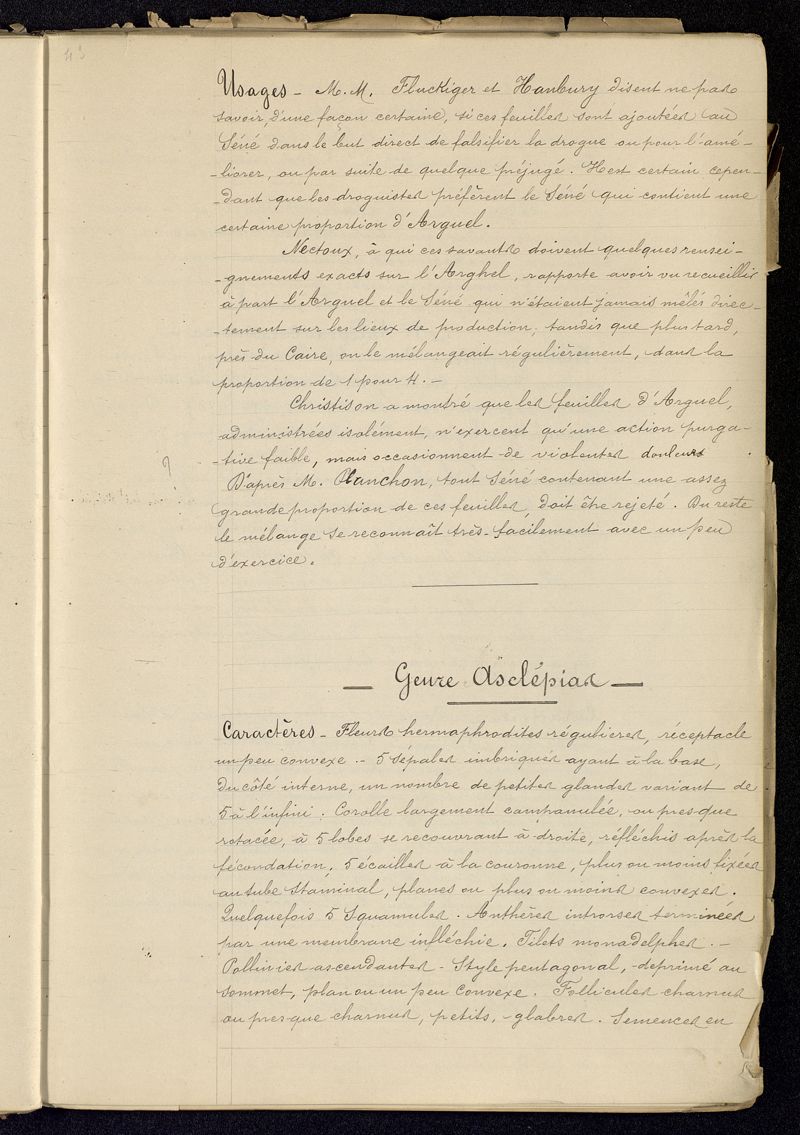 43
Usages - M.M. Fluckiger et Hanbury disent ne pas
savoir, d'une façon certaine, si ces feuilles sont ajoutées au
Séné dans le but direct de falsifier la drogue ou pour l'amé-
-liorer, ou par suite de quelque préjugé. Il est certain cepen-
-dant que les droguistes préfèrent le Séné qui contient une
certaine proportion d'Arguel.
Nectoux, à qui ces savants doivent quelques rensei-
-gnements exacts sur l'Arghel, rapporte avoir vu recueillir
à part l'Arguel et le Séné qui n'étaient jamais mêlés direc-
-tement sur les lieux de production; tandis que plus tard,
près du Caire, on le mélangeait régulièrement, dans la
proportion de 1 pour 4. -
Christison a montré que les feuilles d'Arguel,
administrées isolément, n'exercent qu'une action purga-
-tive faible, mais occasionnent de violentes douleurs
?
D'après M. Planchon, tout Séné contenant une assez
grande proportion de ces feuilles, doit être rejeté. Du reste
le mélange se reconnaît très-facilement avec un peu
d'exercice.
- Genre Asclépias -
Caractères - Fleurs hermaphrodites régulières, réceptacle
un peu convexe. - 5 sépales imbriqués ayant à la base,
du côté interne, un nombre de petites glandes variant de
5 à l'infini. Corolle largement campanulée, ou presque
rotacée, à 5 lobes se recouvrant à droite, réfléchis après la
fécondation. 5 écailles à la couronne, plus ou moins fixées
au tube staminal, planes ou plus ou moins convexes.
Quelquefois 5 Squamules. Anthères introrses terminées
par une membrane infléchie. Filets monadelphes. -
Pollinies ascendantes - Style pentagonal, déprimé au
sommet, plan ou un peu convexe. Follicules charnus
ou presque charnus, petits, - glabres. Semences en